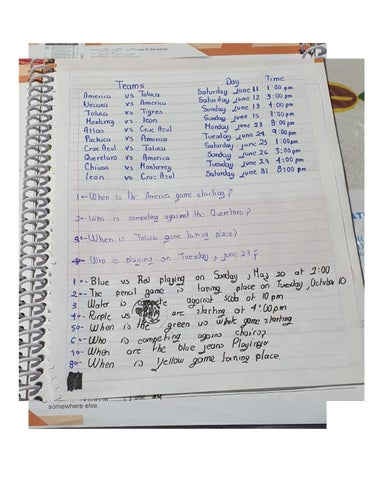 Teams Day Time
America vs Toluca Saturday June 11 1:00 pm
Necaxa vs America Saturday June 12 3:00 pm
Toluca vs Tigres Sunday June 13 4:00 pm
Monterrey vs Leon Sunday June 15 7:00 pm
Atlas vs Cruz Azul Monday June 23 8:00 pm
Pachuca vs America Tuesday June 24 9:00 pm
Cruz Azul vs Toluca Saturday June 25 1:00 pm
Queretaro vs America Sunday June 26 3:00 pm
Chivas vs Monterrey Tuesday June 27 4:00 pm
Leon vs Cruz Azul Saturday June 31 8:00 pm
1.- When is the America game starting?
2.- Who is competing against the Queretaro?
3.- When is Toluca game taning place?
4.- Who is playing on Tuesday, June 27?
1.- Blue vs Red playing on Sunday, May 20 at 2:00
2.- The pencil game is taning place on Tuesday October 10
3 Water is compete against soda at 10 pm
4.- Purple vs are starting at 4:00pm
5.- When is the green vs white game starting
6.- Who is competing agains chairs?
7.- When are the blue jeans Playing?
8.- When is yellow game taning place.
somewhere else.